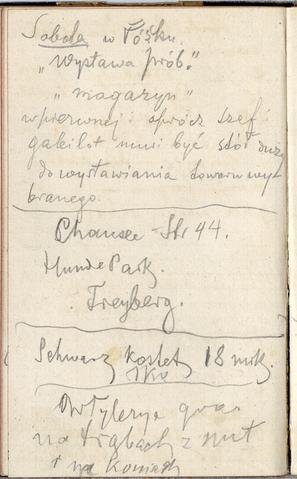 Sobota w Łóżku.
„Wystawa prób."
„magazyn"
w pierwszej i oprócz szef i
gabilot musi być stół duży
do wystawiania towaru wy-
branego.
Chausee - Str 44.
Hunde Park.
Freyberg.
Schwarz kostet 18 mrk.
Artylerye grac
na trąbach z nut
i na koniach